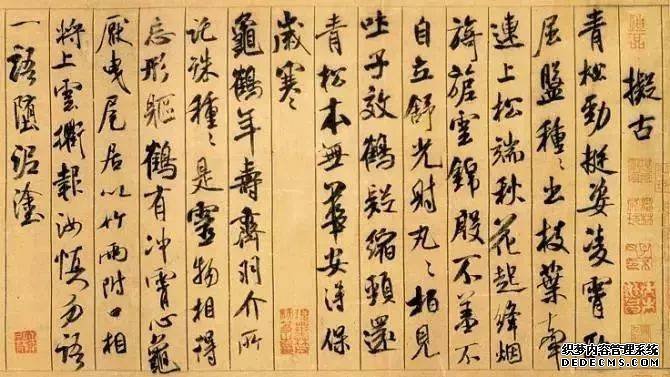 擬古
青松勁挺姿凌霄恥
屈盤種〻出枝葉牽
連上松端秋花起絳烟
旖旎雲錦殷不羞不
自立舒光射丸〻柏見
吐子效鶴疑縮頸還
青松本無華安得保
歲寒〻
龜鶴年壽齊羽介所
託殊種〻是靈物相得
忘形軀鶴有冲霄心龜
厭曳尾居以竹兩附口相
將上雲衢報汝慎勿語
一語墮泥塗
织梦内容管理系统
DEDECMS.COM